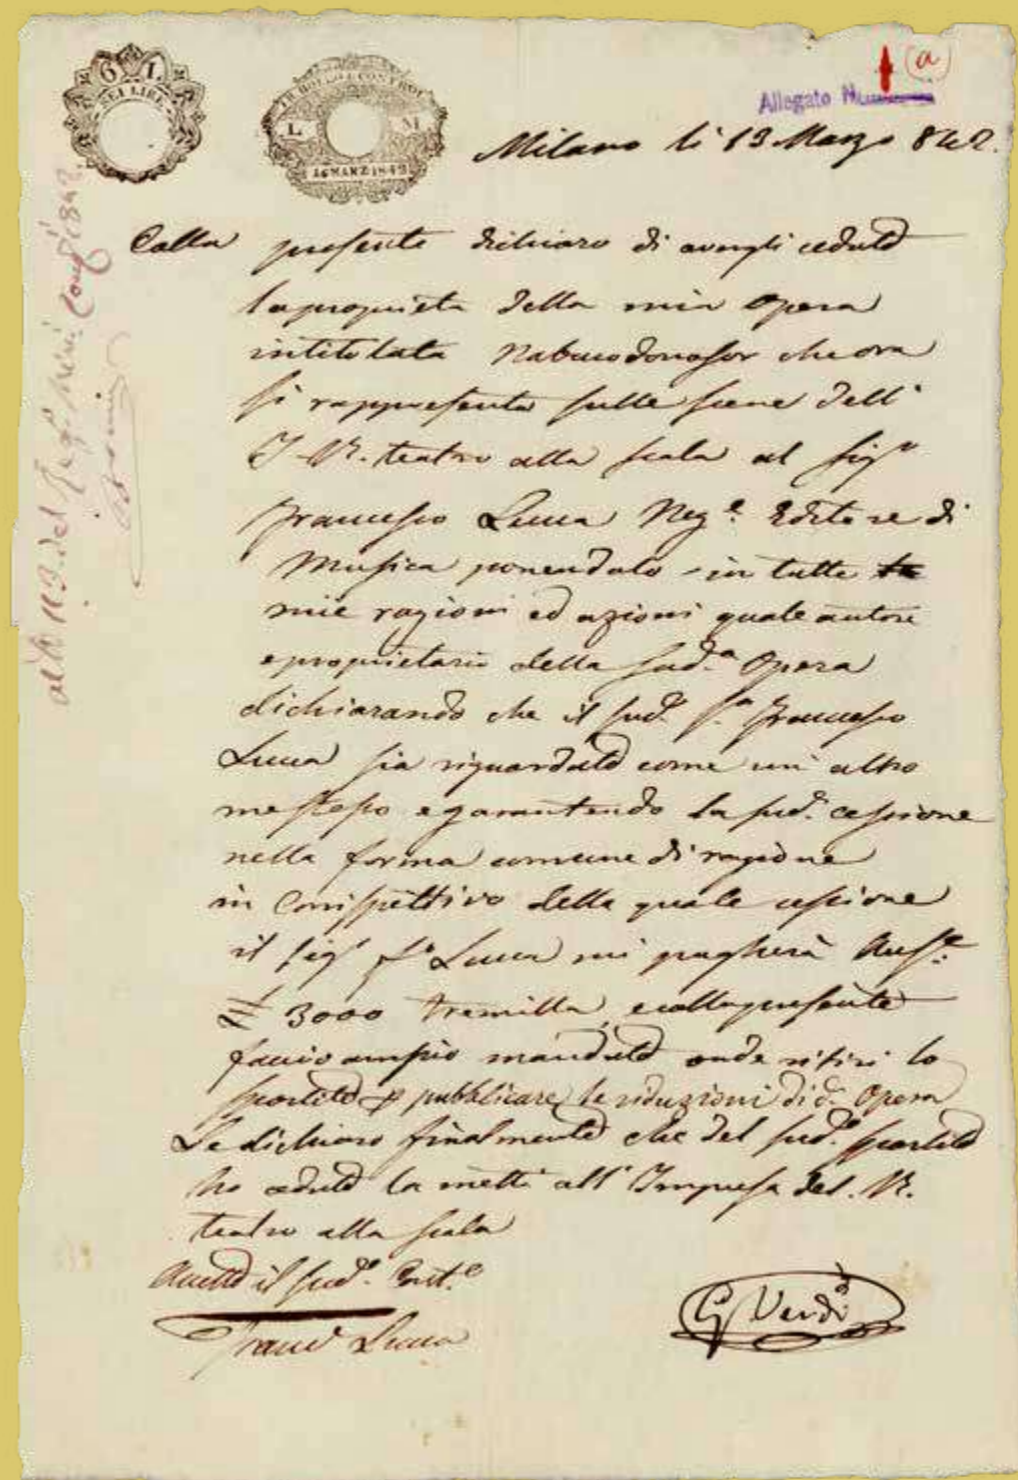 6 L
SEI LIRE
IN BOLLO E CONTROL
L M
16 MARZ 1842
(a)
Allegato
Milano li 19 Marzo 842.
Colla presente dichiaro di avergli ceduto
la proprieta della mia Opera
intitolata Nabucodonosor che ora
si rappresenta sulle scene dell'
I. R. teatro alla scala al Sigr
Francesco Lucca Neg.e Editore di
Musica ponendolo in tutte le
mie ragioni ed azioni quale autore
e proprietario della sud.a Opera
dichiarando che il sud. S.r Francesco
Lucca sia riguardato come un altro
me stesso e garantendo la sud.a cessione
nella forma comune di ragione
in Corrispettivo della quale cessione
il Sigr Fo Lucca mi pagherà Aus.e
£ 3000 tremilla, e colla presente
faccio ampio mandato onde ritiri lo
spartito p pubblicare le riduzioni di d.a Opera
Le dichiaro finalmente che del sud.o spartito
ho ceduto la metti all' Impresa del. R.
teatro alla scala
Accetto il sud.o Cont.o
Franco Lucca
G Verdi
al N 119. del Reg.